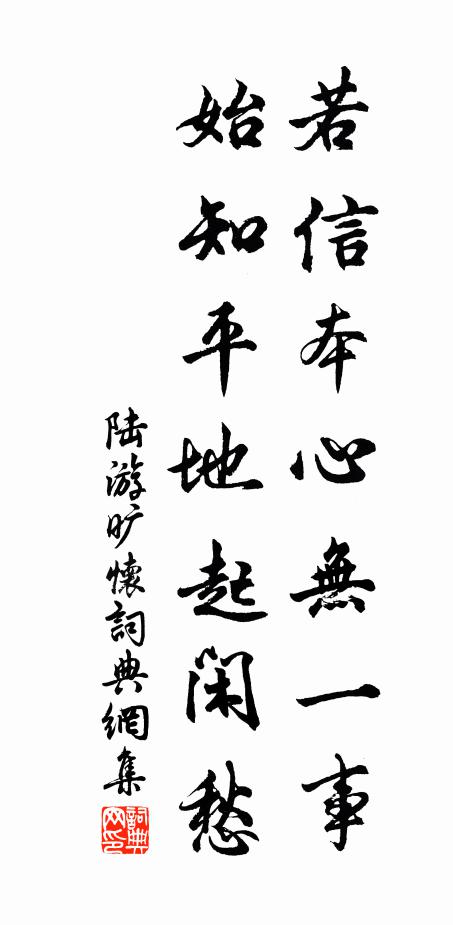 若信本心無一事
始知平地起閑愁
陆游旷懷詞典網集
詞典網印